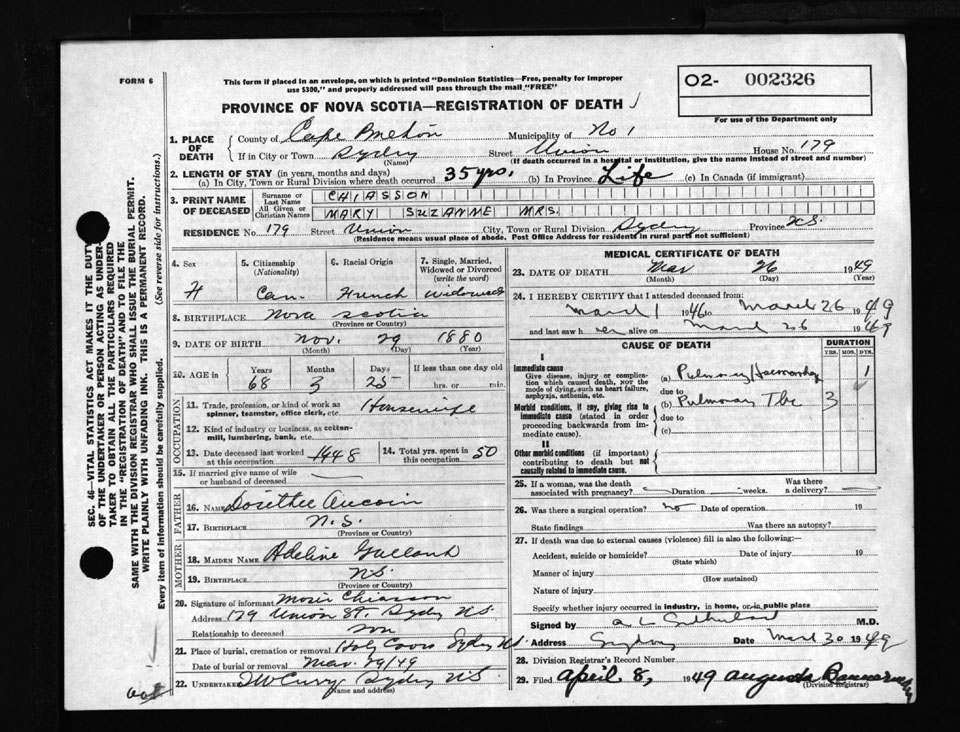 FORM 6
This form if placed in an envelope, on which is printed "Dominion Statistics—Free, penalty for improper
use $300," and properly addressed will pass through the mail "FREE"
O2- 002326
For use of the Department only
PROVINCE OF NOVA SCOTIA—REGISTRATION OF DEATH
1. PLACE OF DEATH County of Cape Breton Municipality of No 1
If in City or Town Sydney Street Union House No. 179
(Name) (If death occurred in a hospital or institution, give the name instead of street and number)
2. LENGTH OF STAY (in years, months and days)
(a) In City, Town or Rural Division where death occurred 35 yrs. (b) In Province Life (c) In Canada (if immigrant)
3. PRINT NAME OF DECEASED Surname or Last Name CHIASSON
All Given or Christian Names MARY SUZANNE MRS.
RESIDENCE No. 179 Street Union City, Town or Rural Division Sydney Province N.S.
(Residence means usual place of abode. Post Office Address for residents in rural parts not sufficient)
4. Sex F
5. Citizenship (Nationality) Can.
6. Racial Origin French
7. Single, Married, Widowed or Divorced (write the word) widowed
8. BIRTHPLACE Nova Scotia
(Province or Country)
9. DATE OF BIRTH Nov. 29 1880
(Month) (Day) (Year)
10. AGE in Years Months Days If less than one day old
68 3 25 hrs. or min.
OCCUPATION
11. Trade, profession, or kind of work as spinner, teamster, office clerk, etc. Housewife
12. Kind of industry or business, as cotton-mill, lumbering, bank, etc.
13. Date deceased last worked at this occupation 1948
14. Total yrs. spent in this occupation 50
15. If married give name of wife or husband of deceased
FATHER
16. NAME Dosithee Aucoin
17. BIRTHPLACE N.S.
(Province or Country)
MOTHER
18. MAIDEN NAME Adeline
19. BIRTHPLACE NS
(Province or Country)
20. Signature of informant Chiasson
Address 179 Union St. Sydney NS.
Relationship to deceased son
21. Place of burial, cremation or removal Holy Cross Sydney NS
Date of burial or removal Mar. 29/49
22. UNDERTAKER Sydney NS
(Name and address)
MEDICAL CERTIFICATE OF DEATH
23. DATE OF DEATH Mar 26 1949
(Month) (Day)
24. I HEREBY CERTIFY that I attended deceased from:
March 1 1946 to March 26 1949
and last saw her alive on March 26 1949
CAUSE OF DEATH
DURATION
YRS. MOS. DYS.
I
Immediate cause
Give disease, injury or complication which caused death, NOT the mode of dying, such as heart failure, asphyxia, asthenia, etc.
(a) Pulmonary Haemorrhage 1
due to
Morbid conditions, if any, giving rise to immediate cause (stated in order proceeding backwards from immediate cause).
(b) Pulmonary Tbc 3
due to
(c)
II
Other morbid conditions (if important) contributing to death but not causally related to immediate cause.
25. If a woman, was the death associated with pregnancy? Duration weeks. Was there a delivery?
26. Was there a surgical operation? no Date of operation 19
State findings Was there an autopsy?
27. If death was due to external causes (violence) fill in also the following:—
Accident, suicide or homicide? Date of injury 19
(State which)
Manner of injury
(How sustained)
Nature of injury
Specify whether injury occurred in industry, in home, or in public place
Signed by A L Sutherland M.D.
Address Sydney Date March 30 1949
28. Division Registrar's Record Number
29. Filed April 8, 1949 Augusta
(Division Registrar)
SEC. 46—VITAL STATISTICS ACT MAKES IT THE DUTY
OF THE UNDERTAKER OR PERSON ACTING AS UNDER-
TAKER TO OBTAIN ALL THE PARTICULARS REQUIRED
IN THE "REGISTRATION OF DEATH" AND TO FILE THE
SAME WITH THE DIVISION REGISTRAR WHO SHALL ISSUE THE BURIAL PERMIT.
WRITE PLAINLY WITH UNFADING INK. THIS IS A PERMANENT RECORD.
Every item of information should be carefully supplied. (See reverse side for instructions.)